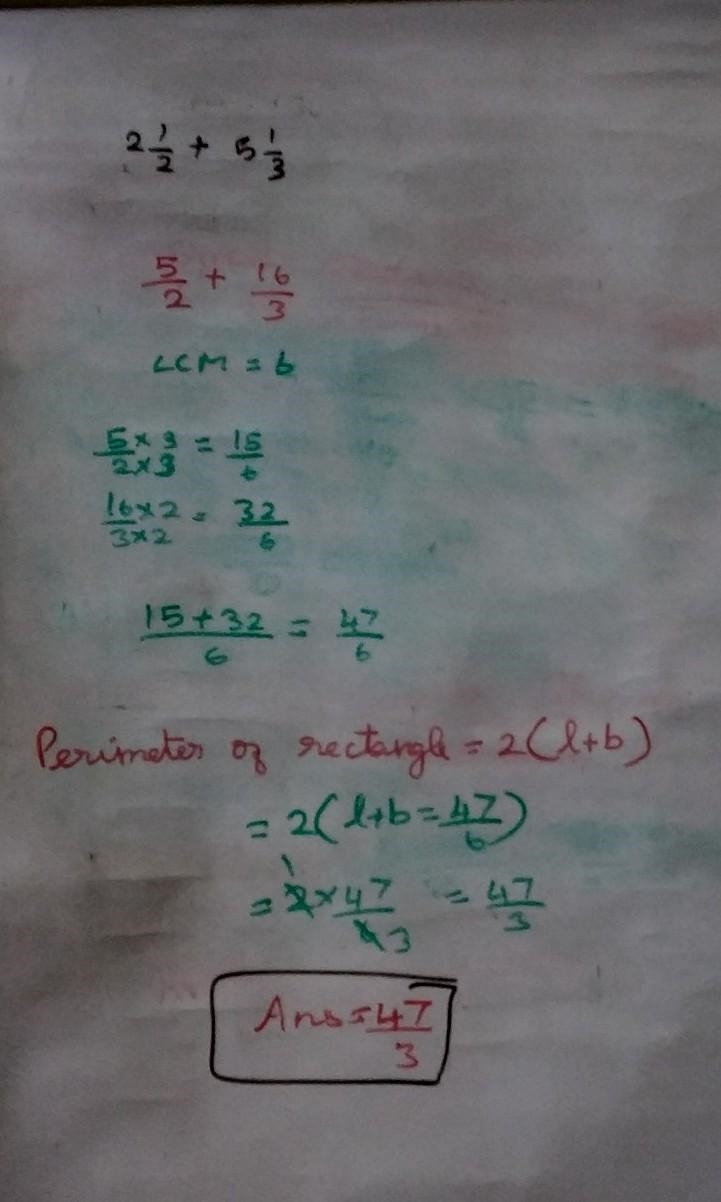 2 1/2 + 5 1/3
5/2 + 16/3
LCM = 6
5×3/2×3 = 15/6
16×2/3×2 = 32/6
15+32/6 = 47/6
Perimeter of rectangle = 2(l+b)
= 2(l+b = 47/6)
= 2 1 × 47/6 3 = 47/3
Ans = 47/3